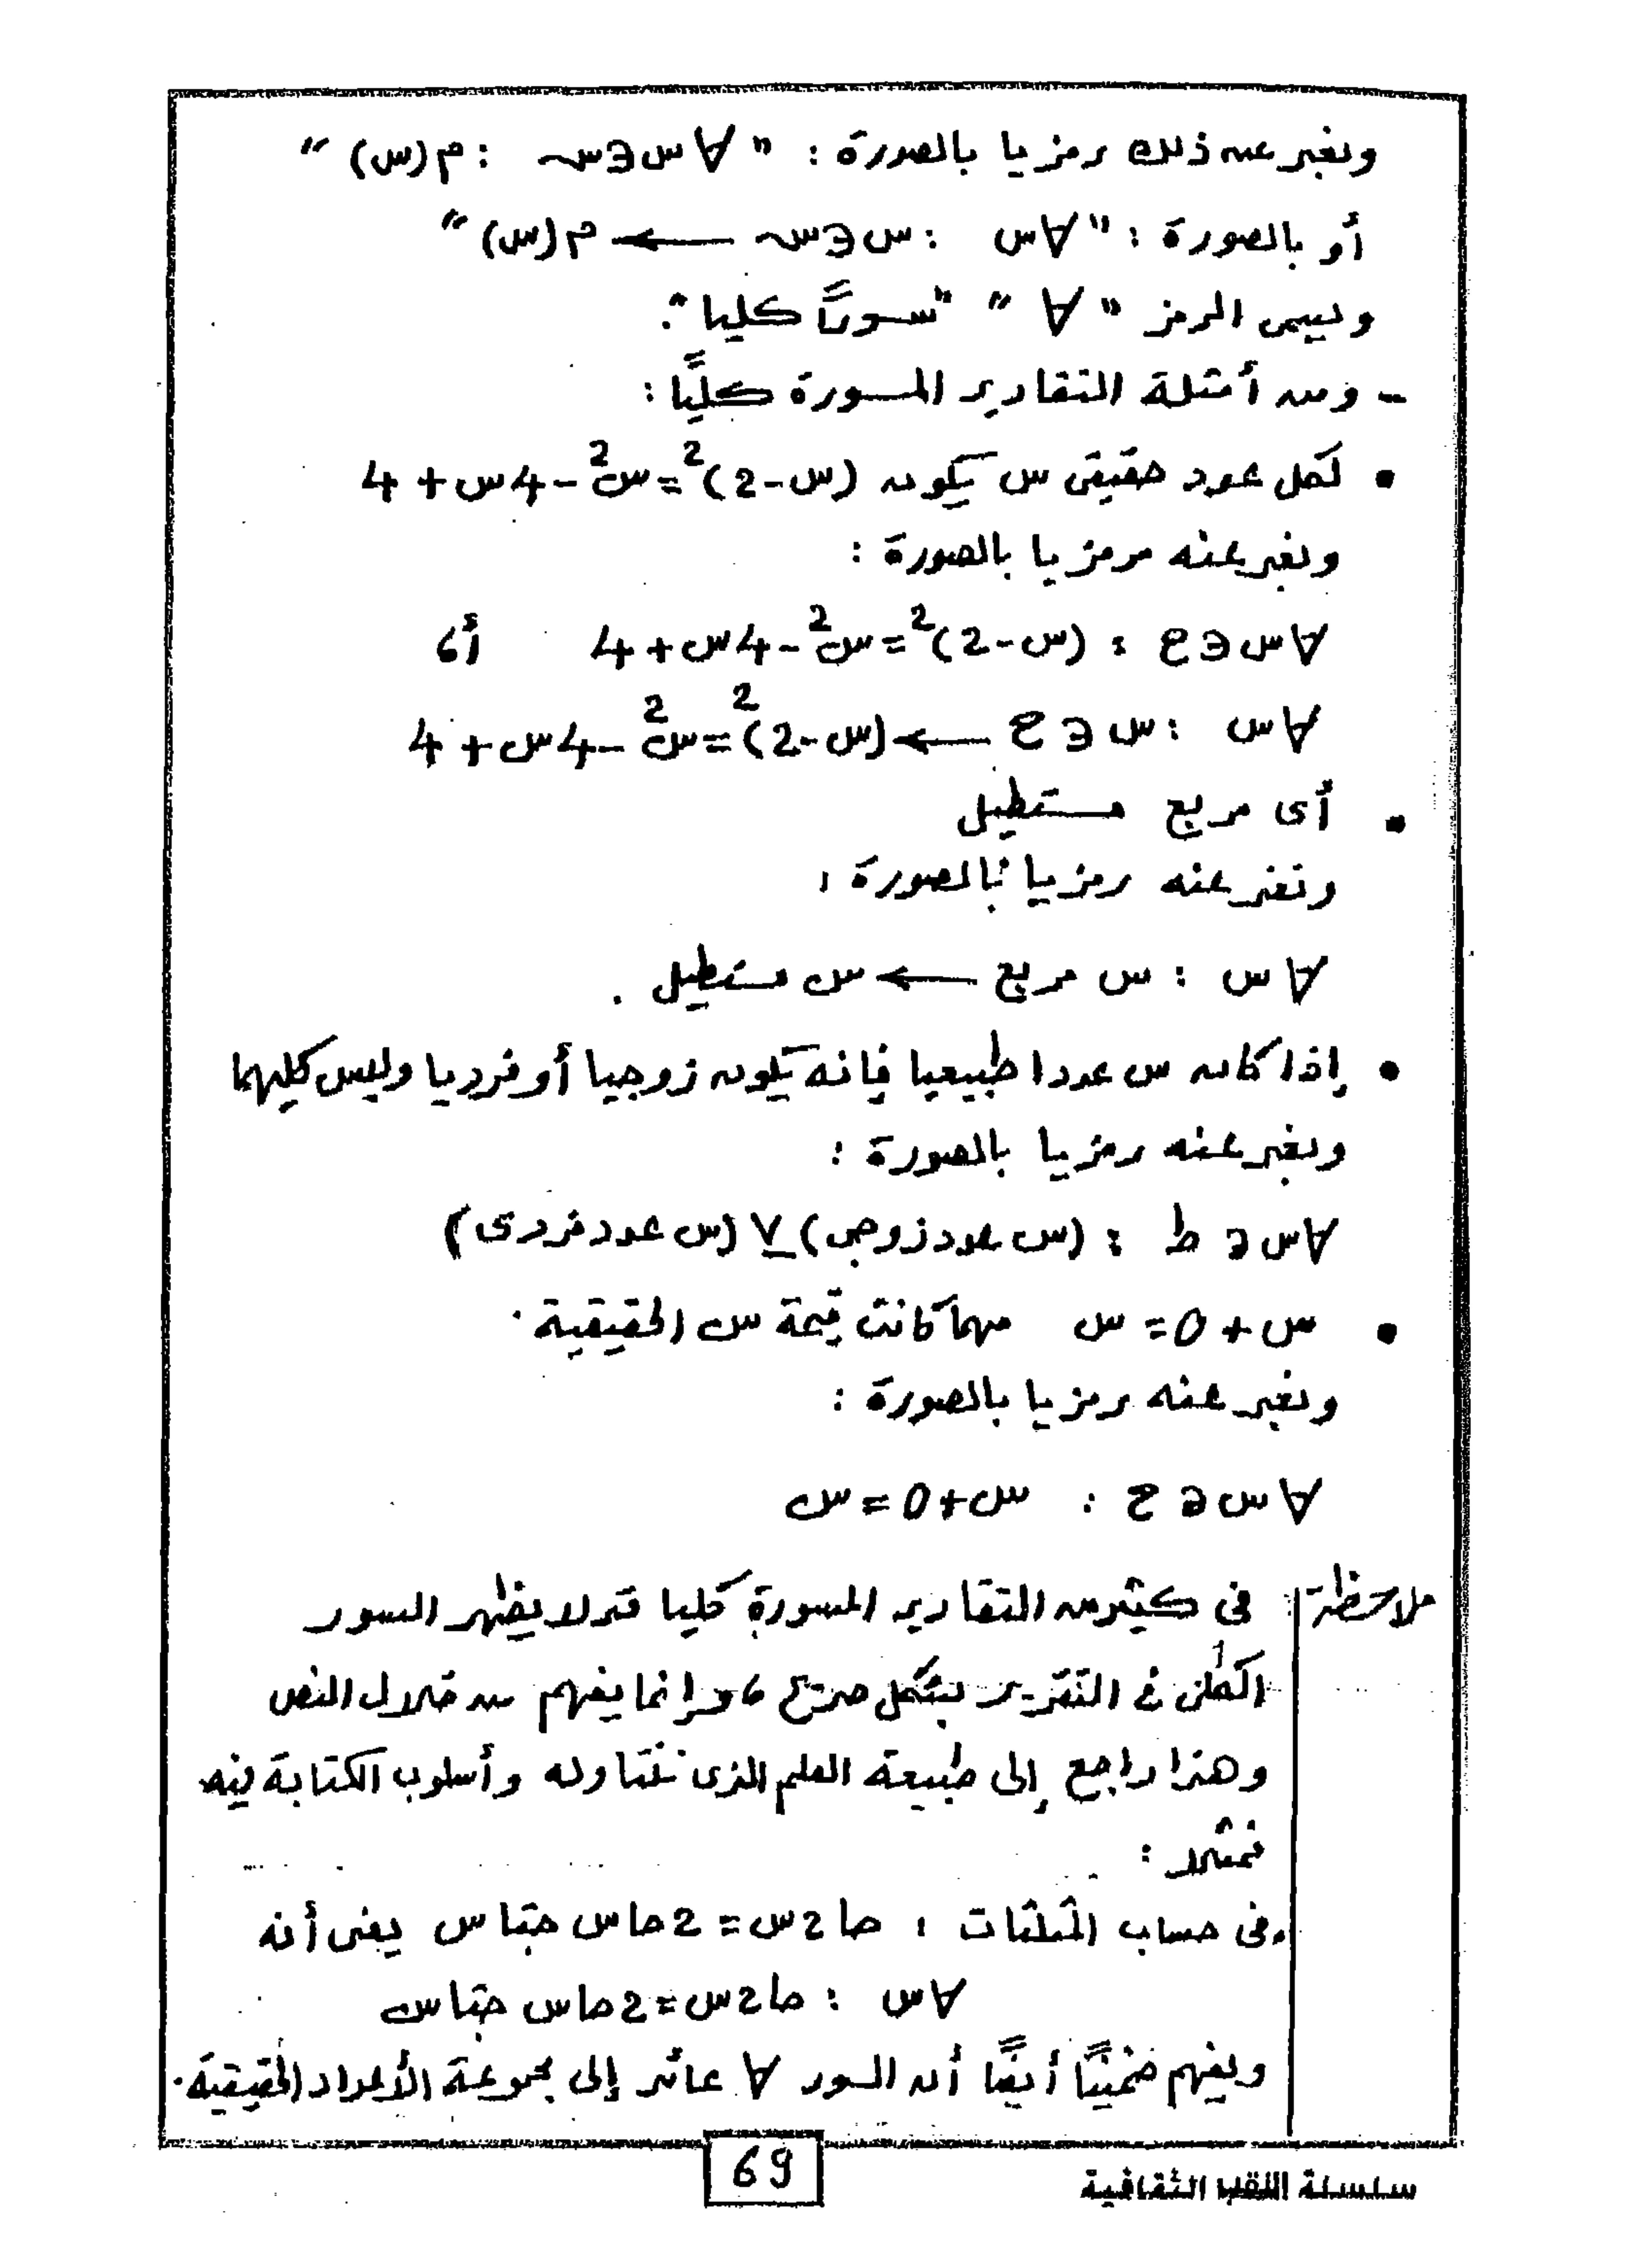 ونعبر عن ذلك رمزيا بالصورة : " ∀ س ∈ سہ : م (س) "
أو بالصورة : " ∀ س : س ∈ سہ ← م (س) "
ويسمى الرمز " ∀ " " سوراً كليا ".
- ومن أمثلة التقارير المسورة كليًّا :
• لكل عدد حقيقى س يكون (س - 2)² = س² - 4س + 4
ونعبر عنه رمزيا بالصورة :
∀ س ∈ ح : (س - 2)² = س² - 4س + 4 أى
∀ س : س ∈ ح ← (س - 2)² = س² - 4س + 4
• أى مربع مستطيل
ونعبر عنه رمزيا بالصورة :
∀ س : س مربع ← س مستطيل .
• إذا كان س عددا طبيعيا فإنه يكون زوجيا أو فرديا وليس كليهما
ونعبر عنه رمزيا بالصورة :
∀ س ∈ ط : (س عدد زوجى) ⊻ (س عدد فردى)
• س + 0 = س مهما كانت قيمة س الحقيقية .
ونعبر عنه رمزيا بالصورة :
∀ س ∈ ح : س + 0 = س
ملاحظة : فى كثير من التقارير المسورة كليا قد لا يظهر السور
الكلى فى التقرير بشكل صريح ، وإنما يفهم من خلال النص
وهذا راجع إلى طبيعة العلم الذى نتناوله وأسلوب الكتابة فيه
فمثلا :
• فى حساب المثلثات : حا 2س = 2 حا س حتا س يعنى أنه
∀ س : حا 2س = 2 حا س حتا س
ويفهم ضمنيًّا أيضًا أن السور ∀ عائد إلى مجموعة الأعداد الحقيقية .
69
سلسلة النقاب الثقافية